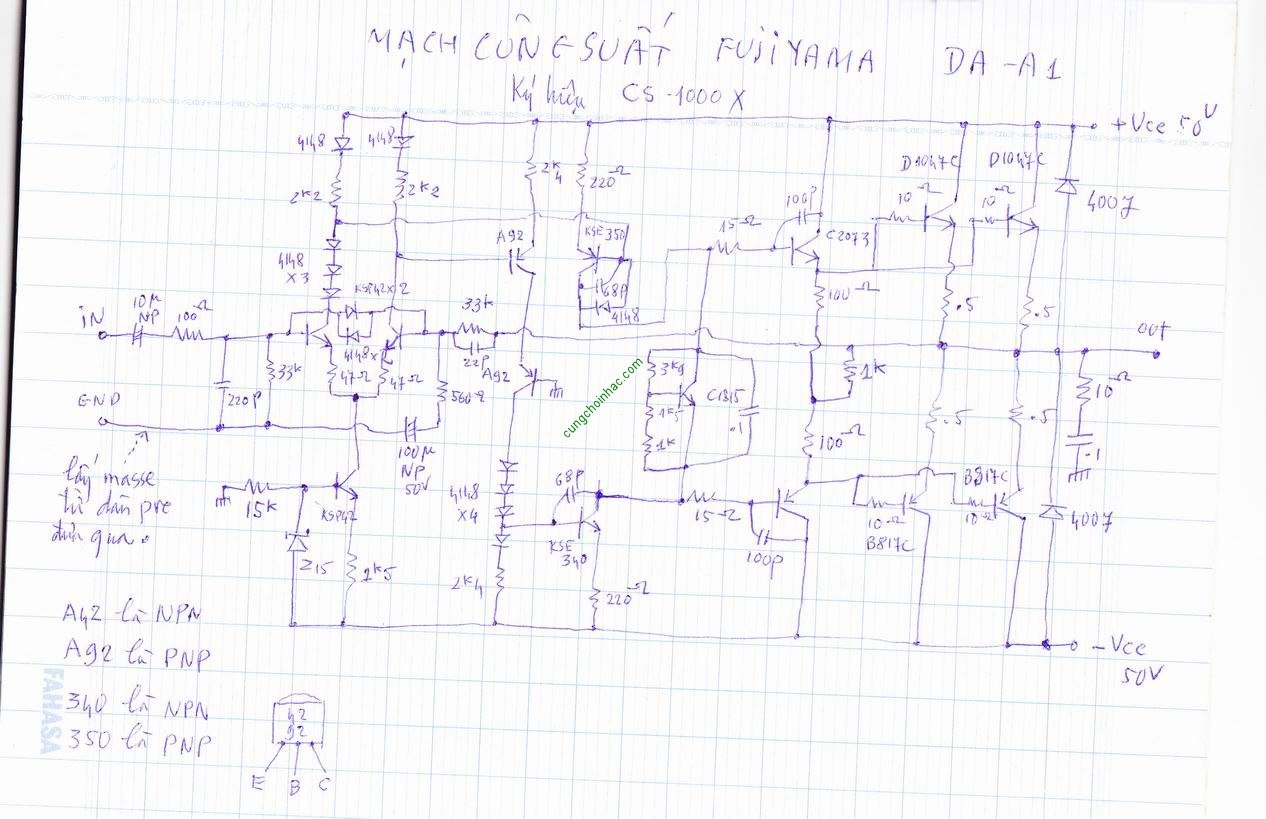 MẠCH CÔNG SUẤT FUJIYAMA DA-A1
Ký hiệu CS-1000X
+Vcc 50V
4148
4148
2k2
2k2
2k4
220Ω
D1047C
D1047C
10Ω
10Ω
4007
100P
15Ω
C2073
A92
KSE 350
68P
4148
4148
X3
KSP42x2
100Ω
.5
.5
iN
10µ
NP
100Ω
33k
22P
4148x
47Ω
47Ω
A92
33k
220P
560Ω
3k9
C1815
1k5
1k
.1
1k
OUT
10Ω
.1
.5
.5
GND
100µ
NP
50V
100Ω
lấy masse
từ dàn pre
đưa qua.
15k
KSP42
Z15
1k5
4148
X4
68P
KSE
340
2k4
220Ω
15Ω
100P
10Ω
B817C
B817C
10Ω
4007
-Vcc
50V
A42 là NPN
A92 là PNP
340 là NPN
350 là PNP
42
92
E B C
FAHASA
cungchoinhac.com